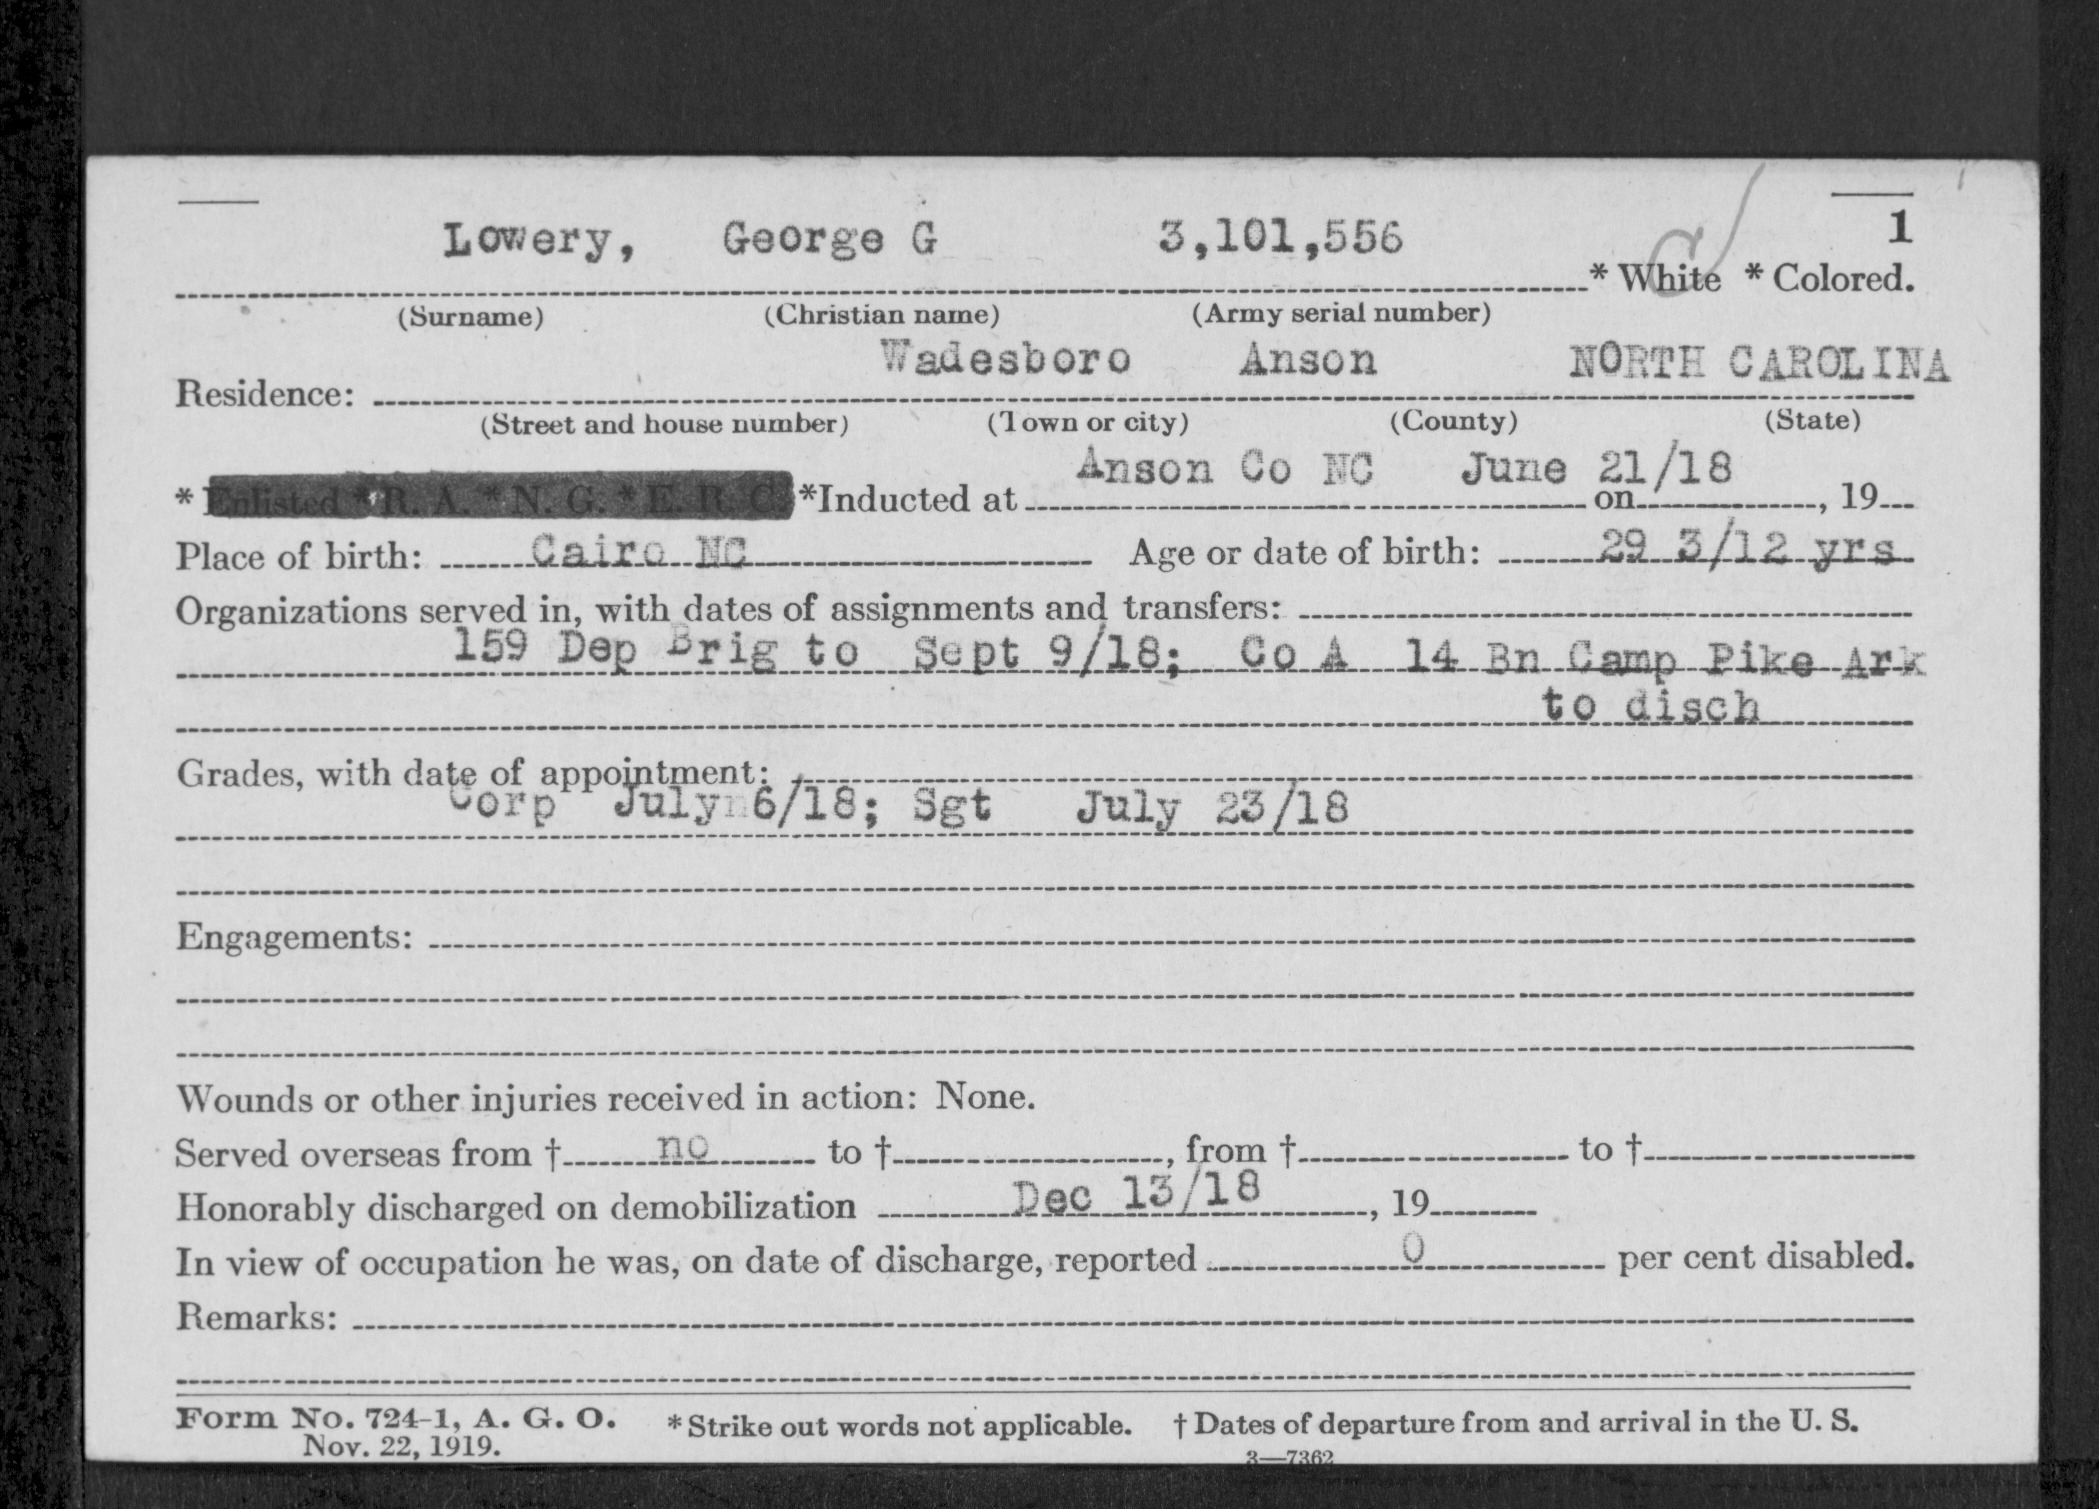 1
Lowery, George G 3,101,556 * White * Colored.
(Surname) (Christian name) (Army serial number)
Wadesboro Anson NORTH CAROLINA
Residence:
(Street and house number) (Town or city) (County) (State)
Anson Co NC June 21/18
* Enlisted * R. A. * N. G. * E. R. C. *Inducted at on , 19
Place of birth: Cairo NC Age or date of birth: 29 3/12 yrs
Organizations served in, with dates of assignments and transfers:
159 Dep Brig to Sept 9/18; Co A 14 Bn Camp Pike Ark
to disch
Grades, with date of appointment:
Corp July 6/18; Sgt July 23/18
Engagements:
Wounds or other injuries received in action: None.
Served overseas from † no to † , from † to †
Honorably discharged on demobilization Dec 13/18 , 19
In view of occupation he was, on date of discharge, reported 0 per cent disabled.
Remarks:
Form No. 724-1, A. G. O. * Strike out words not applicable. † Dates of departure from and arrival in the U. S.
Nov. 22, 1919. 3—7362